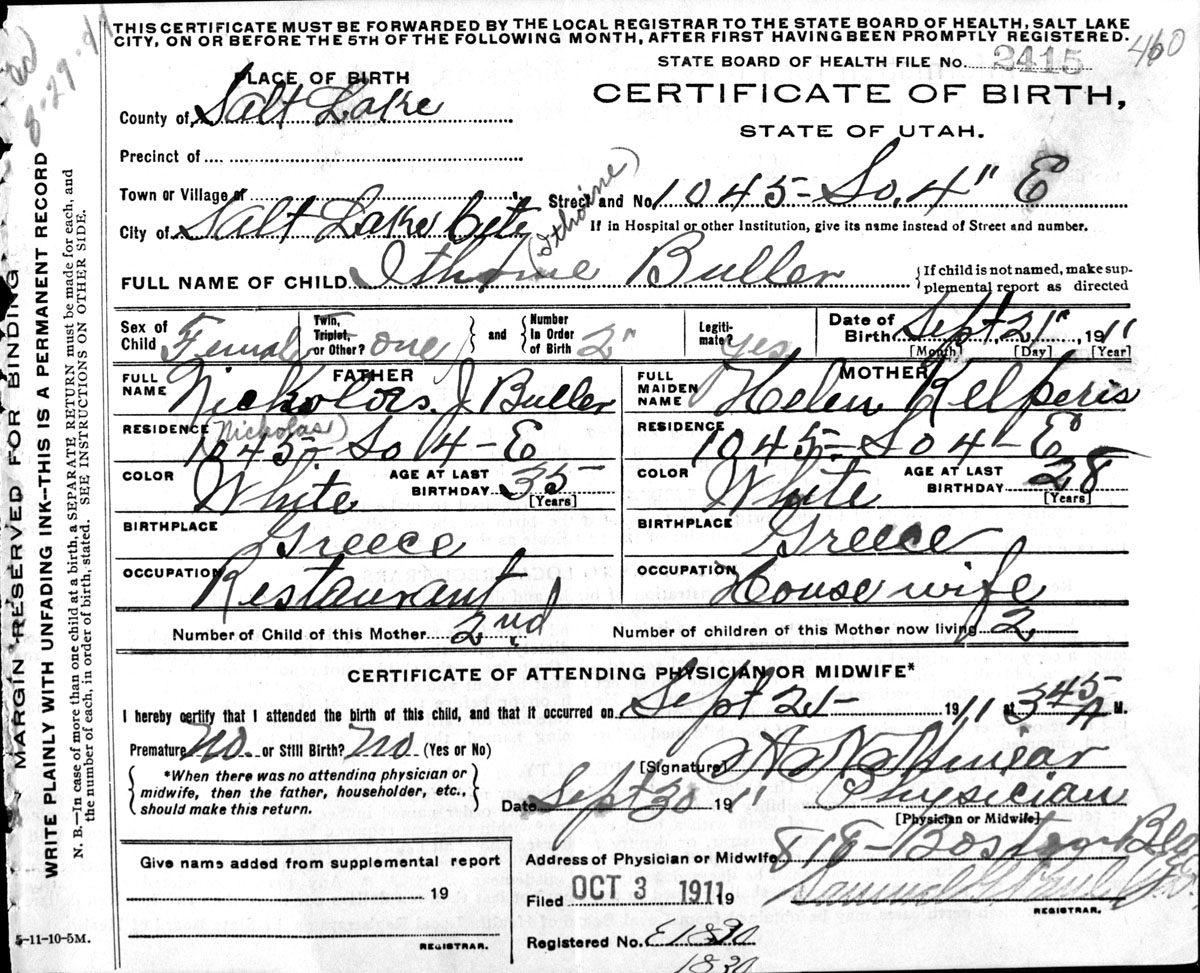 THIS CERTIFICATE MUST BE FORWARDED BY THE LOCAL REGISTRAR TO THE STATE BOARD OF HEALTH, SALT LAKE
CITY, ON OR BEFORE THE 5TH OF THE FOLLOWING MONTH, AFTER FIRST HAVING BEEN PROMPTLY REGISTERED.
STATE BOARD OF HEALTH FILE No. 2415
8-29-41
PLACE OF BIRTH
CERTIFICATE OF BIRTH,
County of Salt Lake
STATE OF UTAH.
Precinct of
Town or Village of
Street and No. 1045 - So. 4" E
City of Salt Lake City
If in Hospital or other Institution, give its name instead of Street and number.
FULL NAME OF CHILD Buller
{If child is not named, make sup-
plemental report as directed
Sex of Child Female
Twin, Triplet, or Other? one
and
Number In Order of Birth 2"
Legiti-mate? yes
Date of Birth Sept. 21" 1911
[Month] [Day] [Year]
FATHER
FULL NAME Nickolas J Buller
(Nicholas)
RESIDENCE 1045 - So 4 - E
COLOR White AGE AT LAST BIRTHDAY 35 [Years]
BIRTHPLACE Greece
OCCUPATION Restaurant
MOTHER
FULL MAIDEN NAME Helen Kelperis
RESIDENCE 1045 - So 4 - E
COLOR White AGE AT LAST BIRTHDAY 28 [Years]
BIRTHPLACE Greece
OCCUPATION House wife
Number of Child of this Mother 2nd
Number of children of this Mother now living 2
CERTIFICATE OF ATTENDING PHYSICIAN OR MIDWIFE*
I hereby certify that I attended the birth of this child, and that it occurred on Sept 21 - 1911 at 3 45 A M.
Premature No or Still Birth? No (Yes or No)
[Signature]
{*When there was no attending physician or
midwife, then the father, householder, etc.,
should make this return.}
Date Sept 30 1911
Physician
[Physician or Midwife]
Address of Physician or Midwife 818 - Boston Bldg
Give name added from supplemental report
19
REGISTRAR.
Filed OCT 3 1911 19
REGISTRAR.
Registered No. E1830
1830
5-11-10-5M.
MARGIN RESERVED FOR BINDING
WRITE PLAINLY WITH UNFADING INK—THIS IS A PERMANENT RECORD
N. B.—In case of more than one child at a birth, a SEPARATE RETURN must be made for each, and
the number of each, in order of birth, stated. SEE INSTRUCTIONS ON OTHER SIDE.